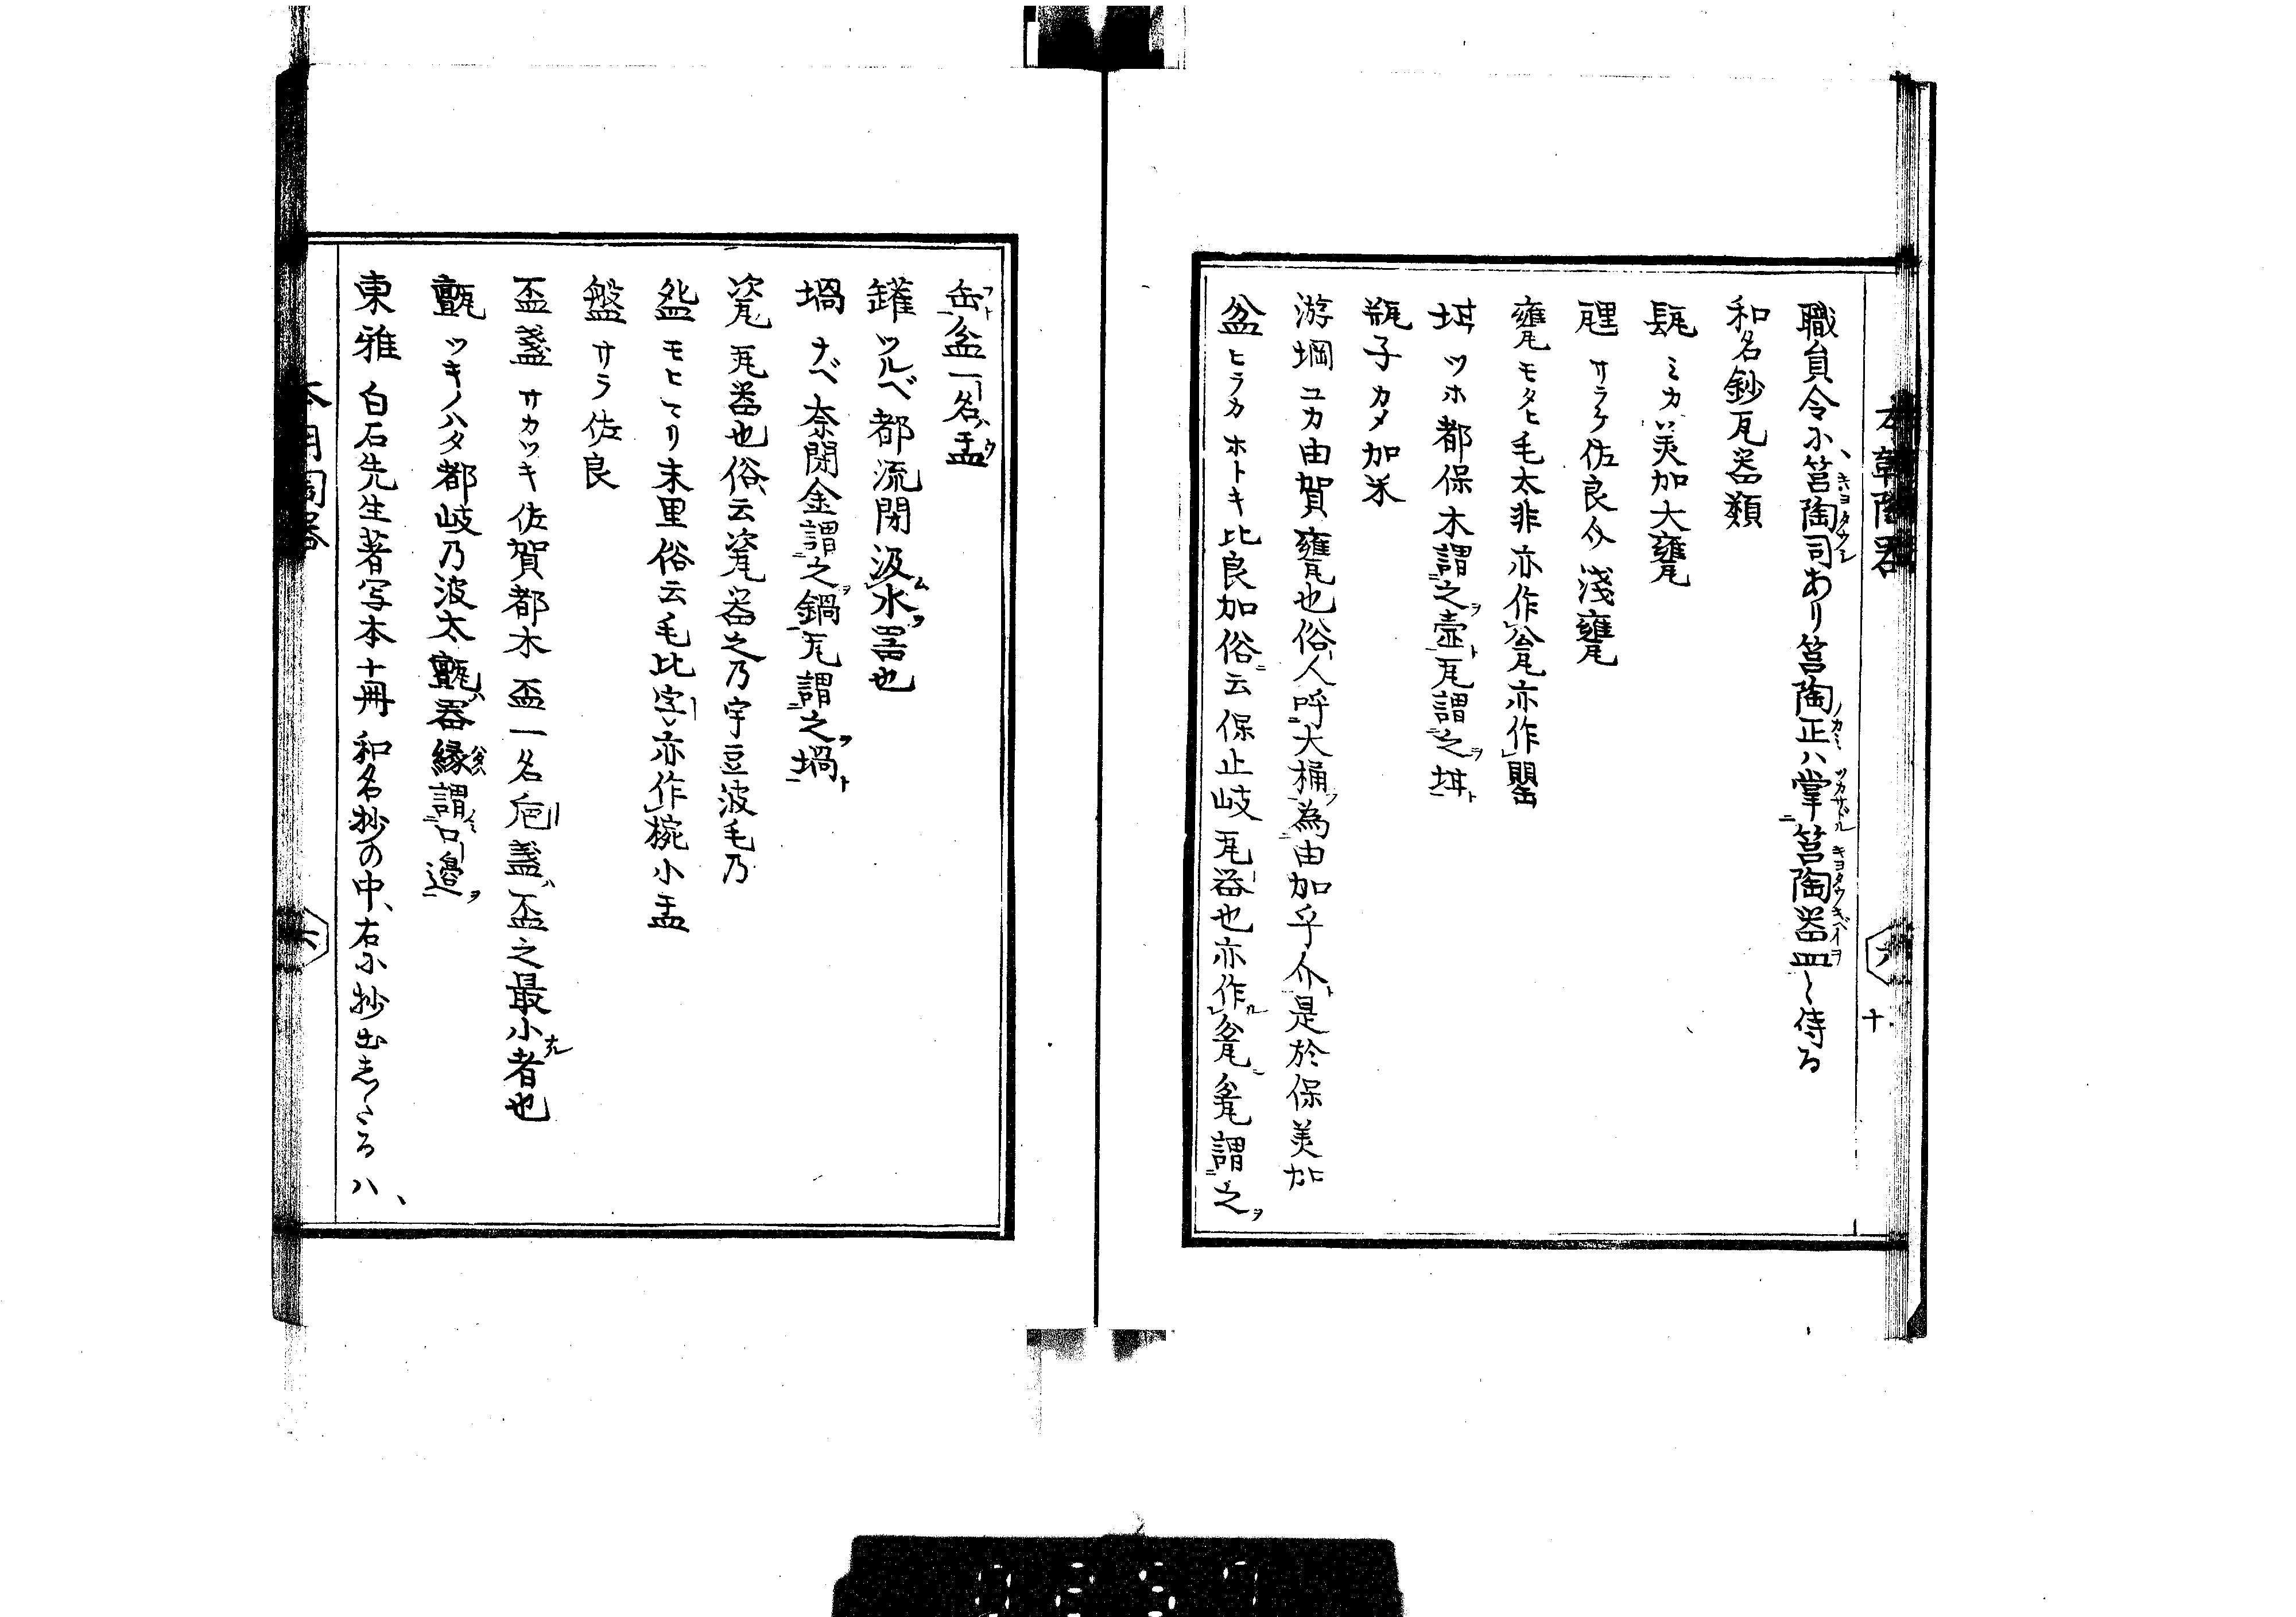 職員令に筥陶司あり筥陶正ハ掌筥陶器皿と侍る
和名鈔瓦器類
𤭖 ミカ 美加大甕
𤭜 サラケ 佐良介 淺甕
甕 モタヒ 毛太非 亦作瓮亦作罌
坩 ツホ 都保 木謂之壷瓦謂之坩
瓶子 カメ 加米
游堈 ユカ 由賀 甕也俗人呼大桶為由加乎介是於保美加
盆 ヒラカ ホトキ 比良加俗云保止岐瓦器也亦作瓫瓫謂之
缶盆一名盂
罐 ツルベ 都流閇 汲水器也
堝 ナベ 奈閇 金謂之鍋瓦謂之堝
瓷 瓦器也俗云瓷器之乃宇豆波毛乃
盌 モヒ マリ 末里俗云毛比字亦作椀小盂
盤 サラ 佐良
盃盞 サカツキ 佐賀都木 盃一名巵盞盃之最小者也
甎 ツキノハタ 都岐乃波太 甎器緣謂口邊
東雅 白石先生著写本十冊 和名抄の中右に抄出したるハ